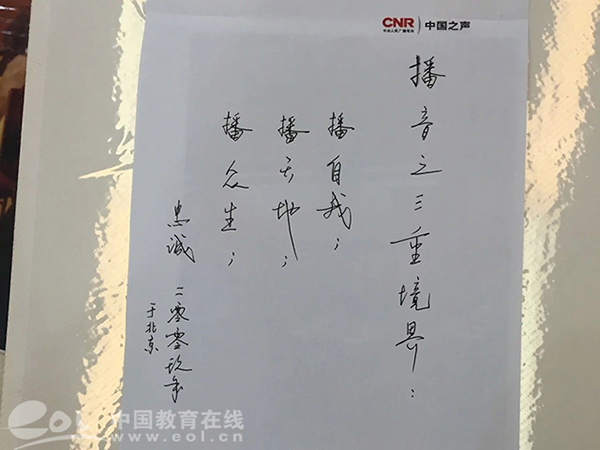 CNR 中国之声
中央人民广播电台
播音之三重境界：
播自我；
播天地；
播众生；
忠诚 二零零玖年
于北京
eol 中国教育在线
www.eol.cn